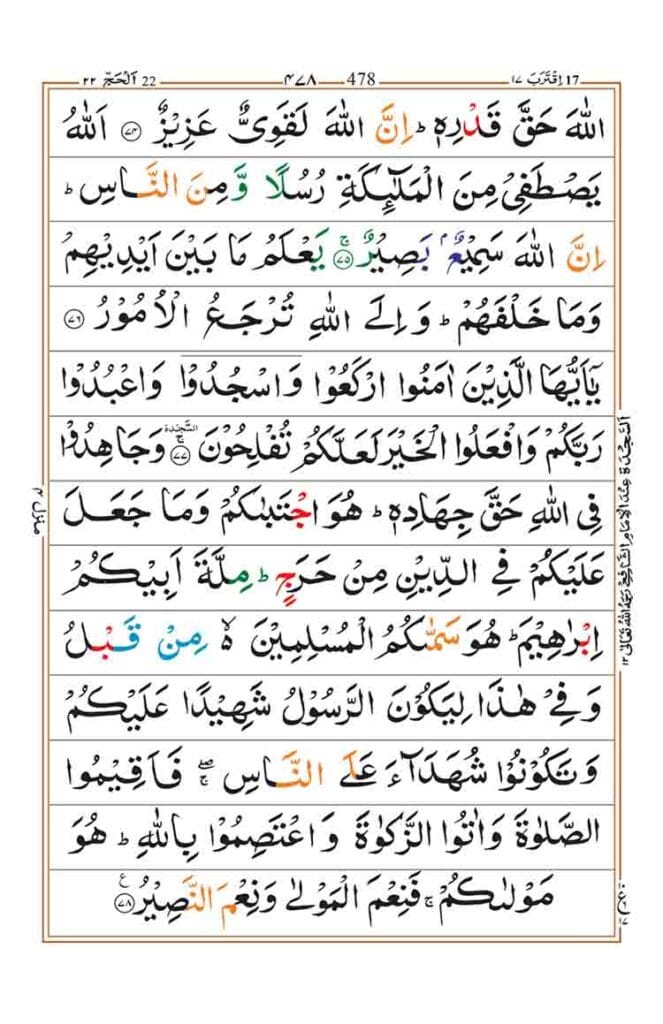 اِقْتَرَبَ ١٧ 17
478 ٤٧٨
22 اَلْحَجّ ٢٢
اللّٰهَ حَقَّ قَدْرِهٖؕ اِنَّ اللّٰهَ لَقَوِىٌّ عَزِيْزٌ ۝٧٤ اَللّٰهُ
يَصْطَفِىْ مِنَ الْمَلٰٓئِكَةِ رُسُلًا وَّمِنَ النَّاسِؕ
اِنَّ اللّٰهَ سَمِيْعٌۢ بَصِيْرٌۚ ۝٧٥ يَعْلَمُ مَا بَيْنَ اَيْدِيْهِمْ
وَمَا خَلْفَهُمْؕ وَاِلَى اللّٰهِ تُرْجَعُ الْاُمُوْرُ ۝٧٦
يٰۤاَيُّهَا الَّذِيْنَ اٰمَنُوا ارْكَعُوْا وَاسْجُدُوْا وَاعْبُدُوْا
رَبَّكُمْ وَافْعَلُوا الْخَيْرَ لَعَلَّكُمْ تُفْلِحُوْنَ السَّجْدَة ۚ ۝٧٧ وَجَاهِدُوْا
فِى اللّٰهِ حَقَّ جِهَادِهٖؕ هُوَ اجْتَبٰىكُمْ وَمَا جَعَلَ
عَلَيْكُمْ فِى الدِّيْنِ مِنْ حَرَجٍؕ مِلَّةَ اَبِيْكُمْ
اِبْرٰهِيْمَؕ هُوَ سَمّٰٮكُمُ الْمُسْلِمِيْنَ ۙ۬ مِنْ قَبْلُ
وَفِىْ هٰذَا لِيَكُوْنَ الرَّسُوْلُ شَهِيْدًا عَلَيْكُمْ
وَتَكُوْنُوْا شُهَدَآءَ عَلَى النَّاسِ ۖۚ فَاَقِيْمُوا
الصَّلٰوةَ وَاٰتُوا الزَّكٰوةَ وَاعْتَصِمُوْا بِاللّٰهِؕ هُوَ
مَوْلٰٮكُمْۚ فَنِعْمَ الْمَوْلٰى وَنِعْمَ النَّصِيْرُ ۝٧٨ ع
اَلسَّجْدَة عِنْدَ الْاِمَامِ الشَّافِعِيّ رَحِمَهُ اللّٰهُ تَعَالٰى ١٢
منزل ٤